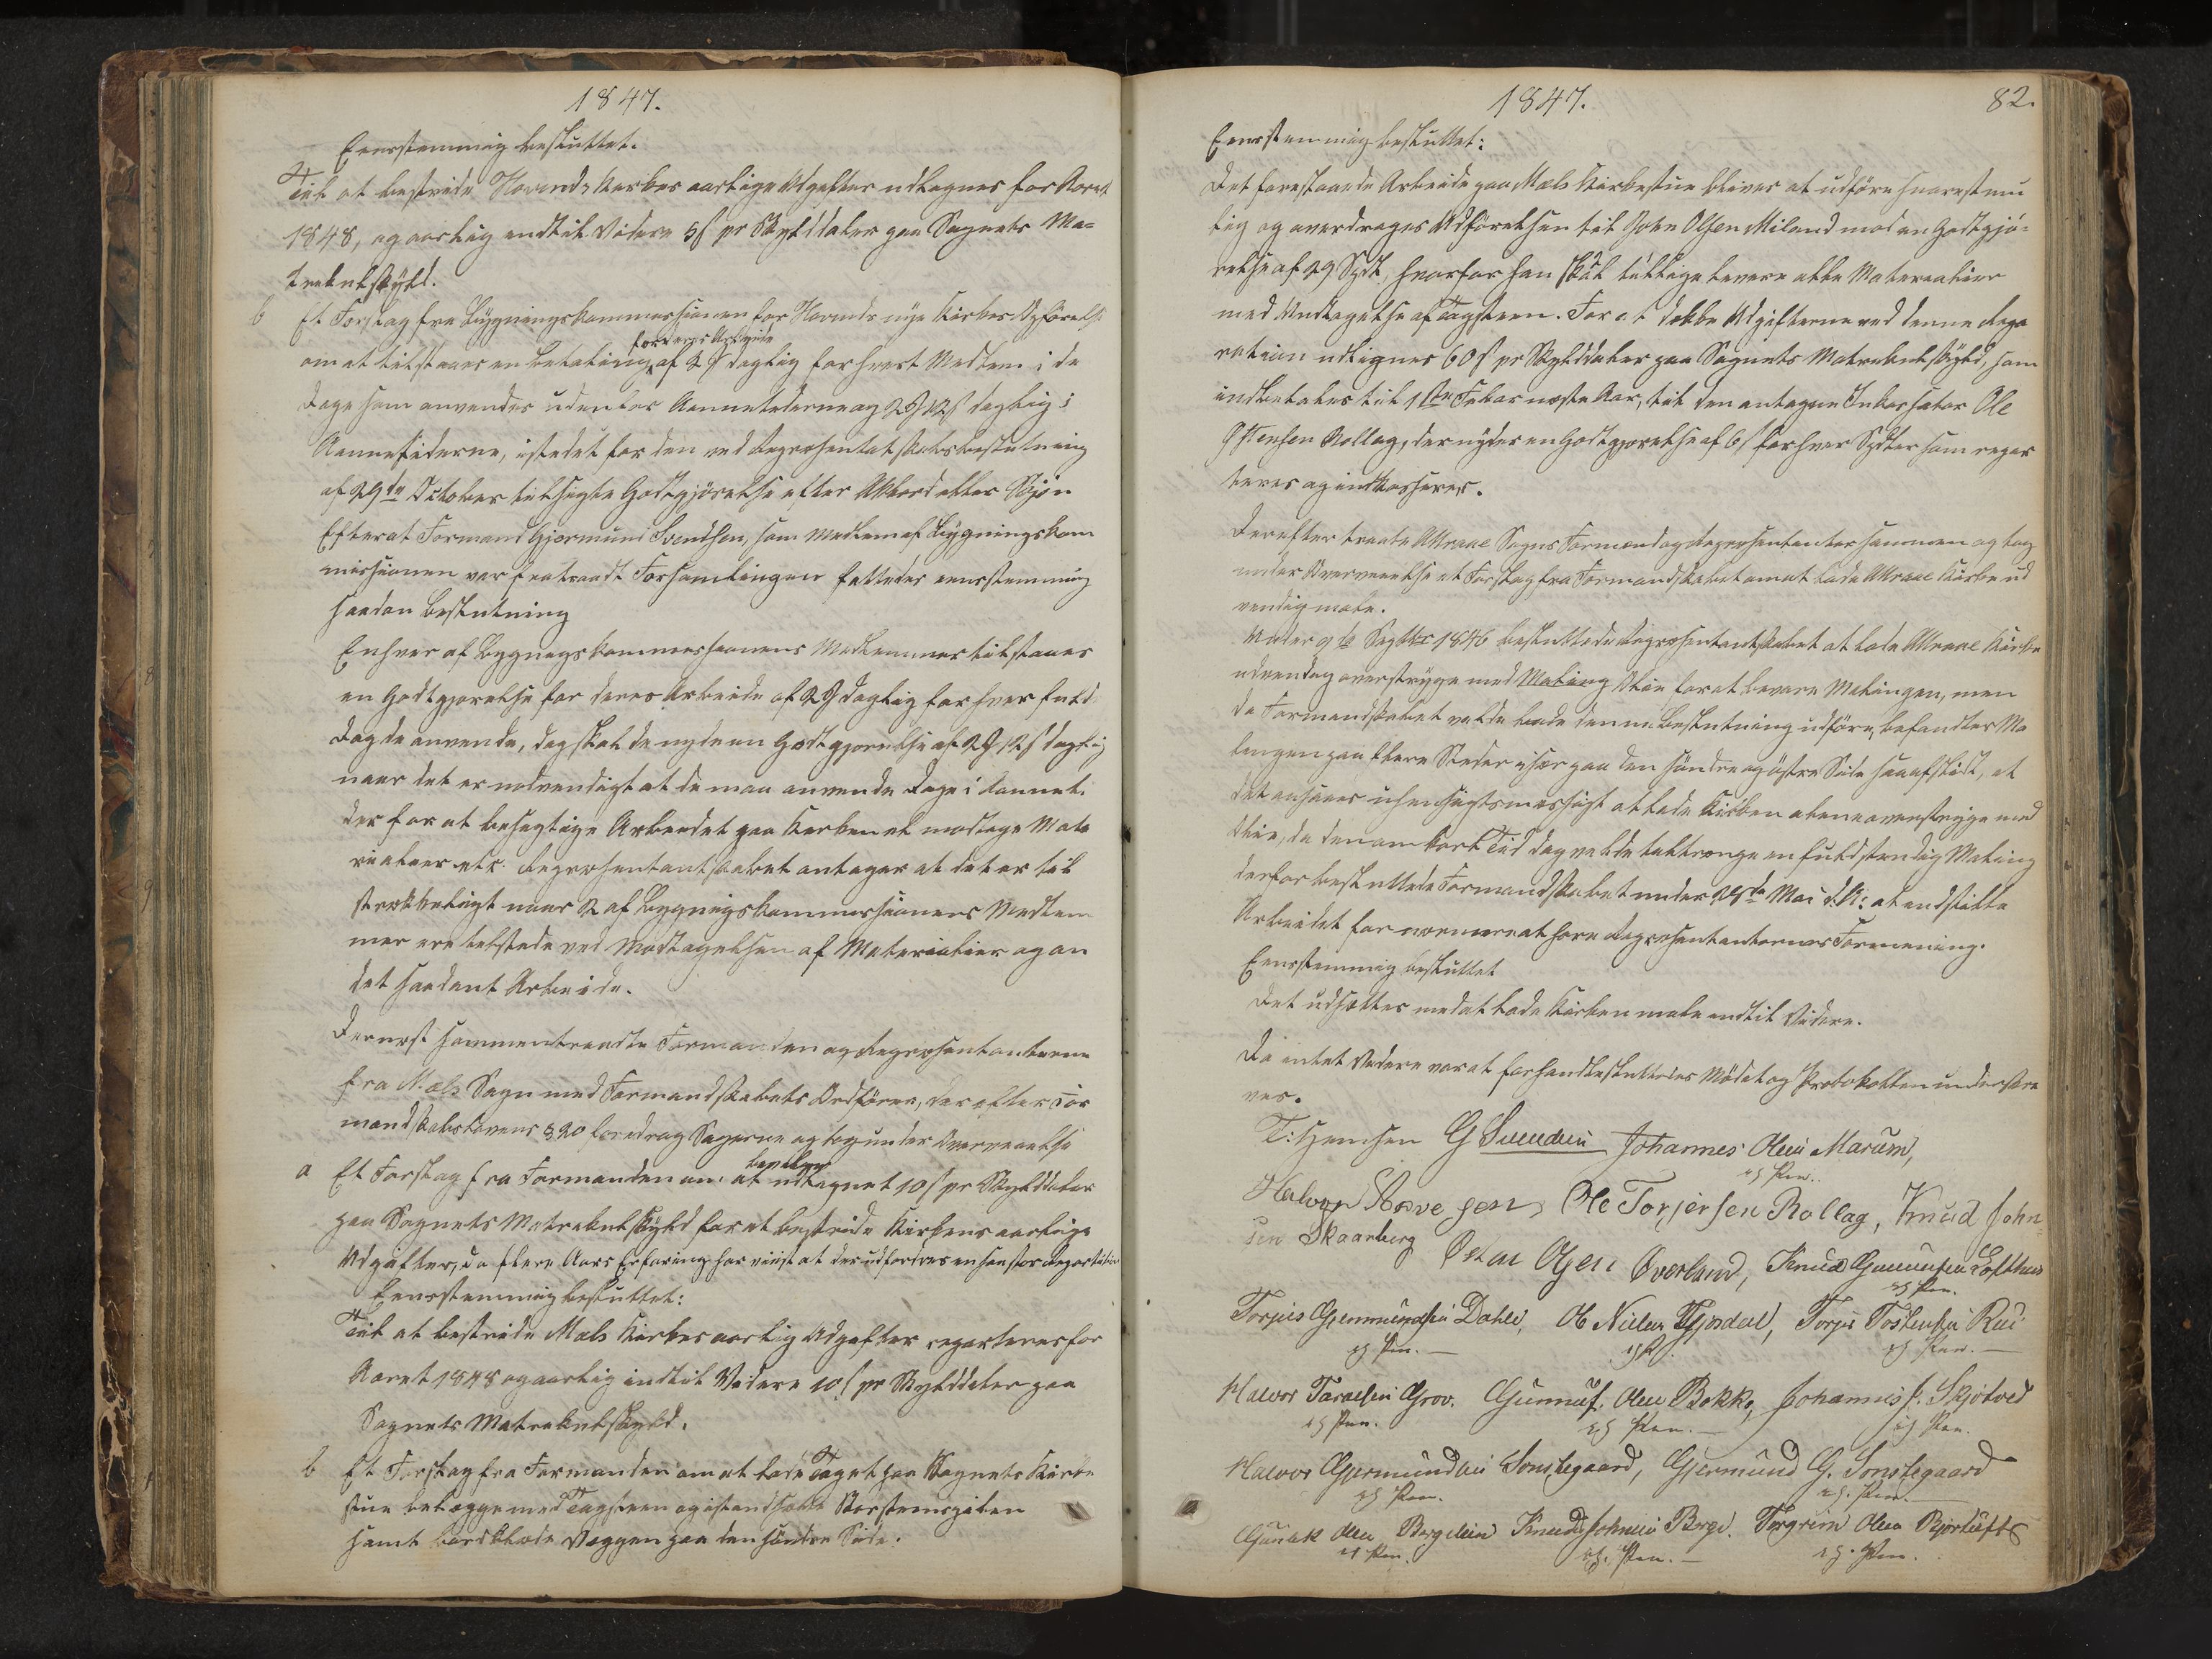 1847.
Eensstemmig besluttet.
Til at bestride Hovinds Kirkes aarlige Udgifter udlignes for Aaret
1848, og aarlig indtil Videre 5 s pr Skylddaler paa Sognets Ma=
trikulskyld.
b Et Forslag fra Bygningskommissionen for Hovinds nye Kirkes Opförelse
om at tilstaaes en Betaling af 2 daglig for hvert Medlem i de
for deres Arbeide
Dage som anvendes udenfor Aannetiderne og 2 12 s daglig i
Aannetiderne, istedet for den ved Repræsentatskabsbeslutning
af 29de October tilsagte Godtgjörelse efter Akkord eller Skjön
Efterat Formand Gjermund Svendsen, som Medlem af Bygningskom
missionen var fratraadt Forsamlingen fattedes eensstemmig
saadan Beslutning
Enhver af Bygnigskommissionens Medlemmer tilstaaes
en Godtgjorelse for deres Arbeide af 2 daglig for hver fuld
Dag de anvende, dog skal de nyde en Godtgjorelse af 2 12 s daglig
naar det er nodvendigt at de maa anvende Dage i Aanneti
der for at besigtige Arbeidet paa Kirken at modtage Mate
rialier etc. Repræsentantskabet antager at det er til
strækkeligt naar 2 af Bygnigskommissionens Medlem
mer ere tilstede ved Modtagelsen af Materialier og an
det saadant Arbeide.
Dernæst sammentraadte Formanden og Repræsentanterne
fra Mæls Sogn med Formandskabets Ordförer, der efter For
mandskabslovens § 20 foredrog Sagerne og tog under Overveielse
a Et Forslag fra Formanden om at udlignet 10 s pr Skylddaler
paa Sognets Matrikulskyld for at bestride Kirkens aarlige
Udgifter, da flere Aars Erfaring har viist at der udfordres en saa stor Repartition
Eensstemmig besluttet:
Til at bestride Mæls Kirkes aarlig Udgifter reparteres for
Aaret 1848 og aarlig indtil Videre 10 s pr Skylddaler paa
Sognets Matrikulskyld.
b Et Forslag fra Formanden om at lade Taget paa Sognets Kirke
stue belægge med Tagsteen og istandsætte Skorsteenspiben
samt bordklæde Væggen paa den söndre Side.
1847. 82.
Eensstemmig besluttet:
Det forestaaende Arbeide paa Mæls Kirkestue bliver at udföre snarest mu
lig og overdrages Udförelsen til John Olsen Miland mod en Godtgjö=
relse af 29 Spdl, hvorfor han skal tillige levere alle Materialier
med Undtagelse af Tagsteen. For at dække Udgifterne ved denne Repa
ration udlignes 60 s pr Skylddaler paa Sognets Matrikulskyld, som
indbetales til 1ste Febar næste Aar, til den antagne Inkassator Ole
Østensen Rollag, der nyder en Godtgjorelse af 6 s for hver Spdler som repar
teres og indkasseres.
Derefter traadte Attraae Sogns Formænd og Repræsentanter sammen og tog
under Overveielse et Forslag fra Formandskabet om at lade Attraae Kirke ud
vendig male.
Under 9de Septbr 1846 besluttede Repræsentantskabet at lade Attraae Kirke
udvendig overstryge med Maling Olie for at bevare Malingen, men
da Formandskabet vilde lade denne Beslutning udföre, befandtes Ma
lingen paa flere Steder især paa den söndre og östre Side saa afslidt, at
det ansaaes uhensigtsmæssigt at lade Kirken alene overstryge med
Olie, da den om kort Tid dog vilde tiltrænge en fuldstændig Maling
derfor besluttede Formandskabet under 29de Mai d.A: at indstille
Arbeidet for nærmere at höre Repræsentanternes Formening.
Eensstemmig besluttet
Det udsættes med at lade Kirken male indtil Videre.
Da intet Videre var at forhandle sluttedes Mödet og Protokollen underskre
ves.
T: Hansen G Svendsen Johannes Olsen Marum,
Halvor Aavesen, Ole Torjersen Rollag, Knud John=
m. f. Pen.
sen Skaarberg Østen Olsen Øverland, Knud Gunnufsen Lofthus
Torjus Gjermundsen Dahle, Ole Nielsen Gjosdal, Torjus Tostensen Rui
Halvor Taraldsen Grov. Gunnuf. Olsen Bokko, Johannes J. Skjotved
Halvor Gjermundsen Sonstegaard, Gjermund G. Sonstegaard
Gunuk Olsen Bergelien Knud Johnsen Berge. Torgrim Olsen Bjortuft